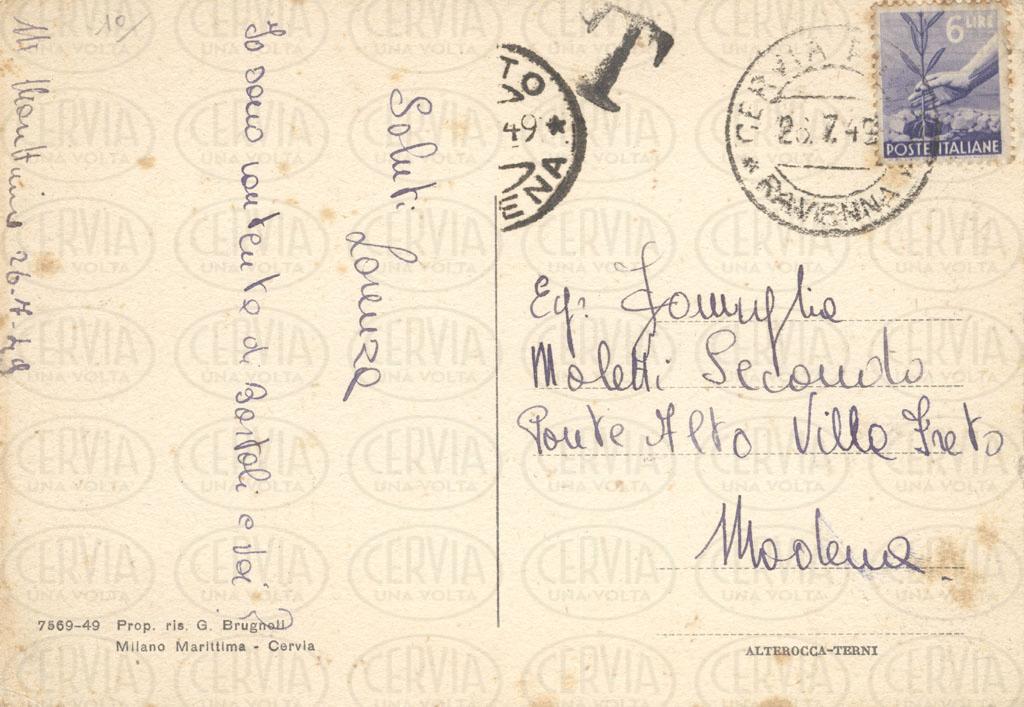 Mi Marittima 26-7-49
Io sono contento di Bartoli e voi ?
Saluti
Lorenza
10/
T
TO
49 *
ENA
CERVIA
26.7.49
* RAVENNA *
6 LIRE
POSTE ITALIANE
Eg: Famiglia
Maletti Secondo
Ponte Alto Villa Freto
Modena.
7569-49 Prop. ris. G. Brugnoli
Milano Marittima - Cervia
ALTEROCCA-TERNI
CERVIA
UNA VOLTA